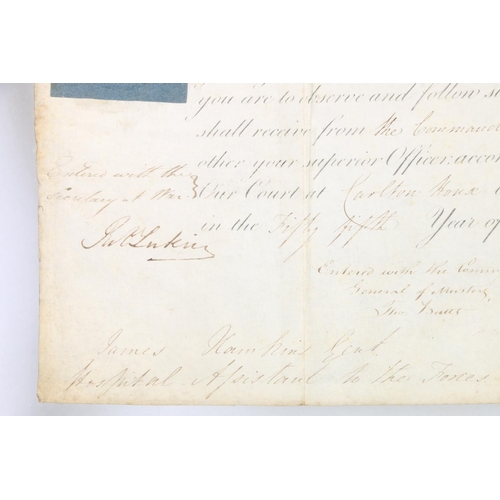 you are to observe and follow su
shall receive from the Command
other your superior Officer, acco
Our Court at Carlton House
in the Fifty fifth Year of
Entered with the
Secretary at War
Entered with the Comm
General of Musters
James Hawkins Gent
Hospital Assistant to the Forces